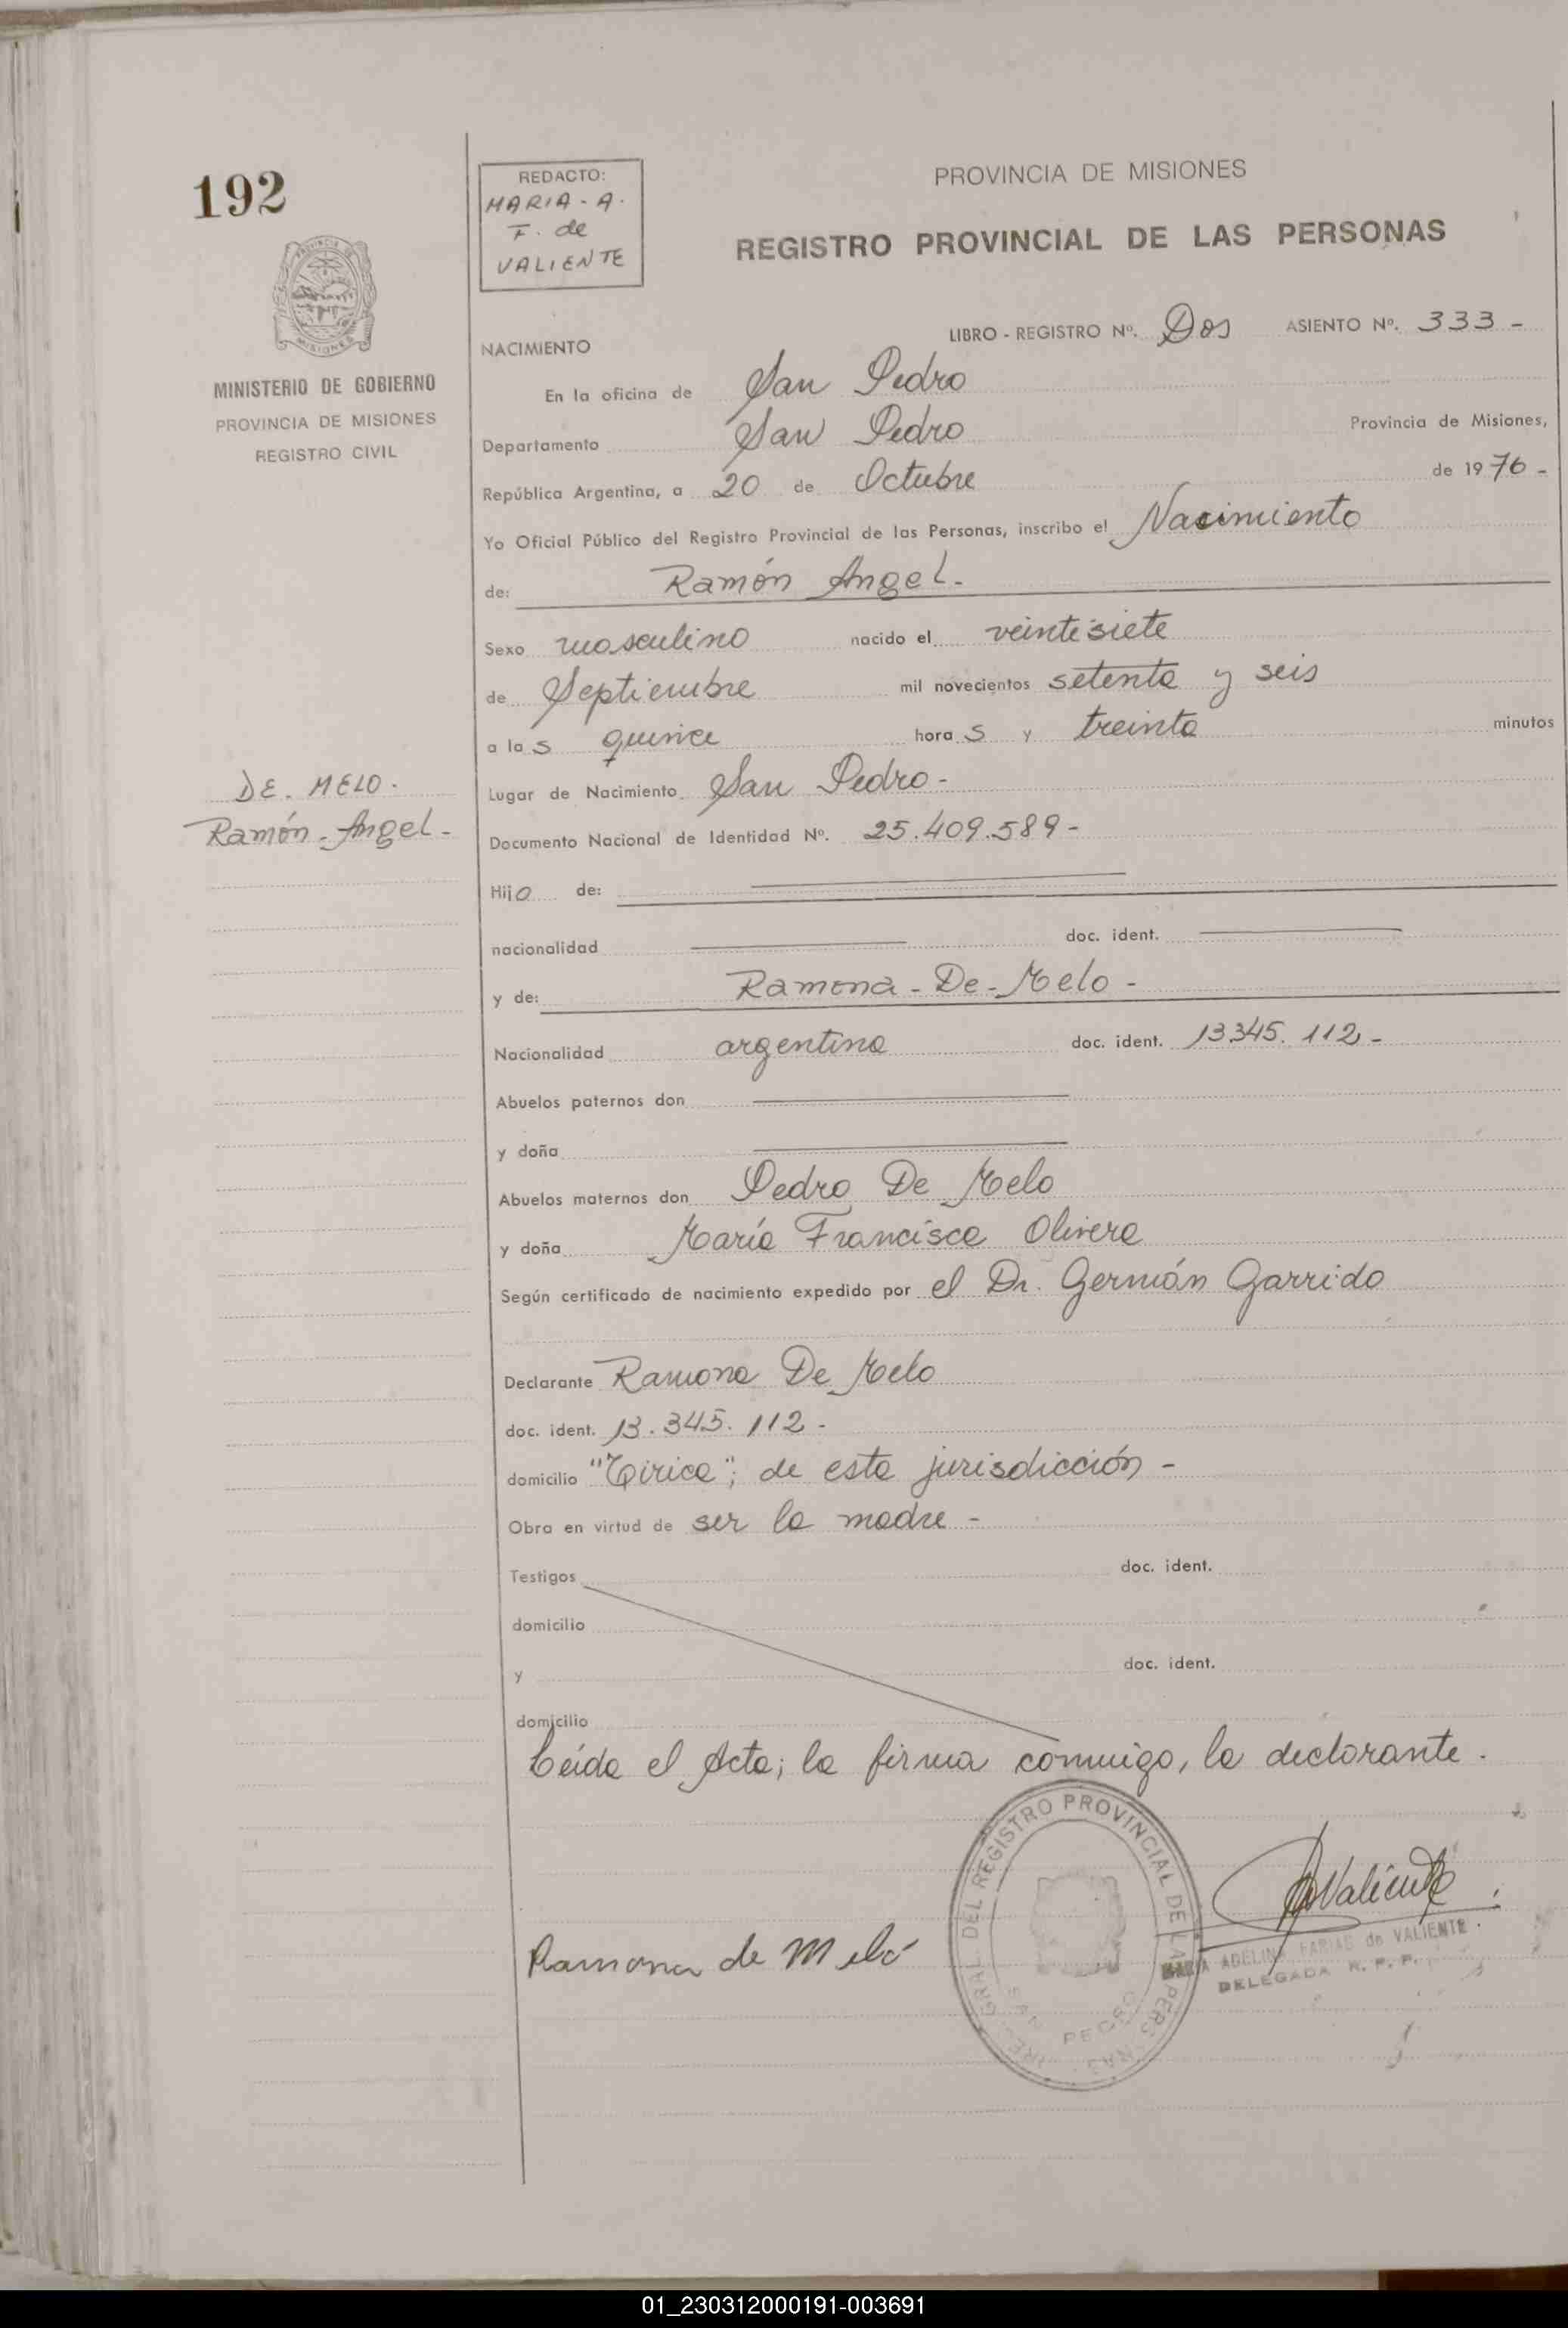 192
REDACTO:
MARIA - A.
F. de
VALIENTE
PROVINCIA DE MISIONES
REGISTRO PROVINCIAL DE LAS PERSONAS
PROVINCIA DE
MISIONES
MINISTERIO DE GOBIERNO
PROVINCIA DE MISIONES
REGISTRO CIVIL
LIBRO - REGISTRO Nº. Dos ASIENTO Nº. 333 -
NACIMIENTO
En la oficina de San Pedro
Departamento San Pedro Provincia de Misiones,
República Argentina, a 20 de Octubre de 1976 -
Yo Oficial Público del Registro Provincial de las Personas, inscribo el Nacimiento
de: Ramón Angel -
Sexo masculino nacido el veintisiete
de Septiembre mil novecientos setenta y seis
a las quince horas y treinta minutos
DE. MELO.
Ramón - Angel -
Lugar de Nacimiento San Pedro -
Documento Nacional de Identidad Nº. 25.409.589 -
Hijo de:
nacionalidad doc. ident.
y de: Ramona - De - Melo -
Nacionalidad argentina doc. ident. 13345.112 -
Abuelos paternos don
y doña
Abuelos maternos don Pedro De Melo
y doña María Francisca Olivera
Según certificado de nacimiento expedido por el Dr. Germán Garrido
Declarante Ramona De Melo
doc. ident. 13.345.112 -
domicilio de esta jurisdicción -
Obra en virtud de ser la madre -
Testigos doc. ident.
domicilio
y doc. ident.
domicilio
Leída el Acta; la firma conmigo, la declarante.
DEL REGISTRO PROVINCIAL DE LAS PERSONAS
SAN PEDRO
AValiente
Ramona de Melo
MARIA ADELINA FARIAS de VALIENTE
DELEGADA R. P. P.
01_230312000191-003691